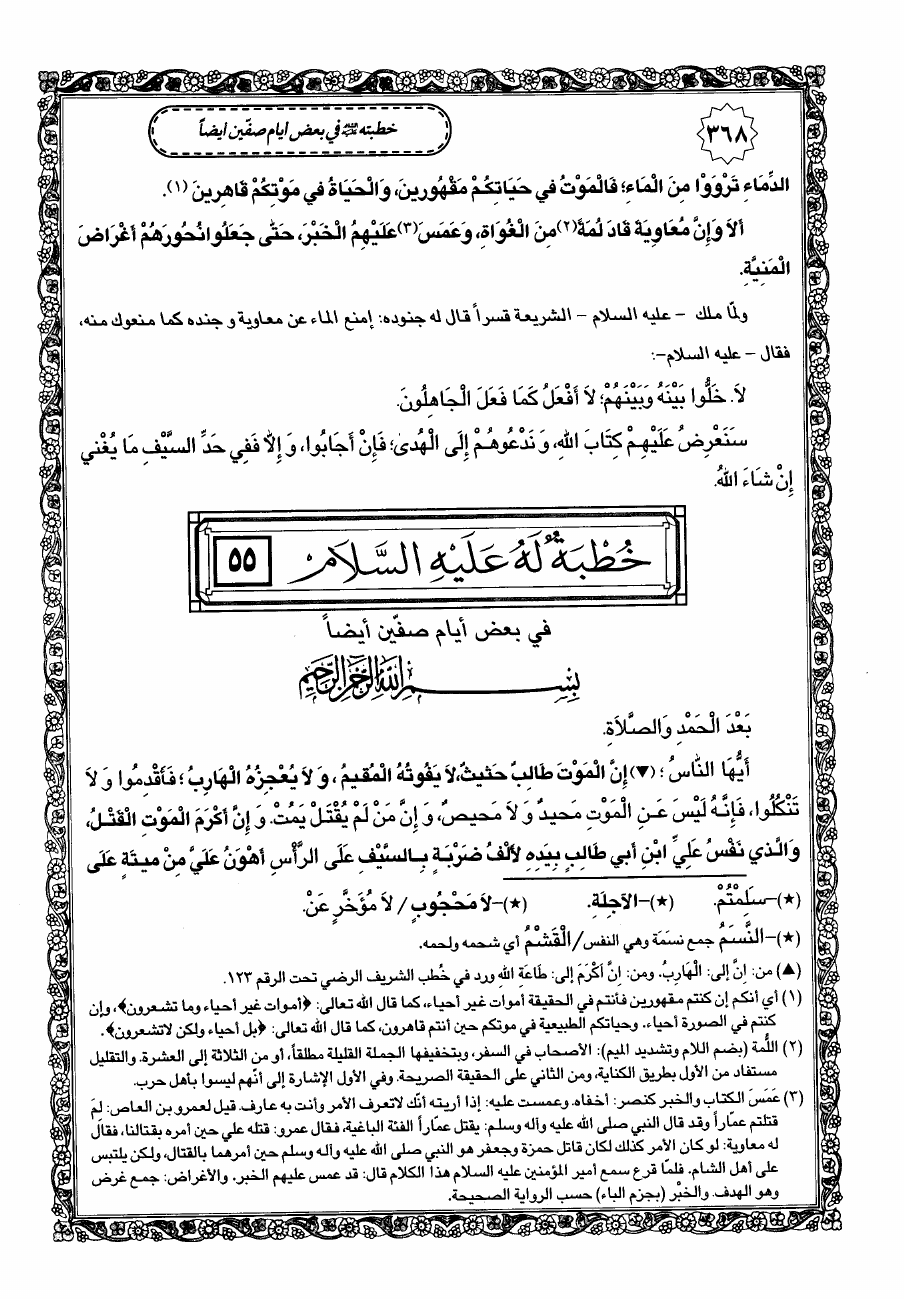 ٣٦٨
خطبته عليه السلام في بعض أيام صفّين أيضاً
الدِّمَاءِ تَرْوَوْا مِنَ الْمَاءِ؛ فَالْمَوْتُ في حَيَاتِكُمْ مَقْهُورينَ، وَالْحَيَاةُ في مَوْتِكُمْ قَاهِرينَ (١).
ألاَ وَإنَّ مُعَاوِيَةَ قَادَ لُمَةً(٢)مِنَ الْغُوَاةِ، وَعَمَسَ(٣)عَلَيْهِمُ الْخَبْرَ، حَتّٰى جَعَلُوا نُحُورَهُمْ أَغْرَاضَ
الْمَنِيَّةِ.
ولمّا ملك – عليه السلام – الشريعة قسراً قال له جنوده: إمنع الماء عن معاوية و جنده كما منعوك منه،
فقال – عليه السلام–:
لاَ. خَلُّوا بَيْنَهُ وَبَيْنَهُمْ؛ لاَ أَفْعَلُ كَمَا فَعَلَ الْجَاهِلُونَ.
سَنَعْرِضُ عَلَيْهِمْ كِتَابَ اللهِ، وَ نَدْعُوهُمْ إِلَى الْهُدىٰ؛ فَإِنْ أَجَابُوا، وَ إِلاَّ فَفِي حَدِّ السَّيْفِ مَا يُغْني
إِنْ شَاءَ اللهُ.
خُطْبَةٌ لَهُ عَلَيْهِ السَّلَام ٥٥
في بعض أيام صفّين أيضاً
بِسْمِ اللهِ الرَّحْمٰنِ الرَّحيمِ
بَعْدَ الْحَمْدِ وَالصَّلاَةِ.
أَيُّهَا النَّاسُ؛ (▼) إِنَّ الْمَوْتَ طَالِبٌ حَثيثٌ، لاَ يَفُوتُهُ الْمُقيمُ، وَ لاَ يُعْجِزُهُ الْهَارِبُ؛ فَأَقْدِمُوا وَ لاَ
تَنْكُلُوا، فَإِنَّهُ لَيْسَ عَنِ الْمَوْتِ مَحيدٌ وَ لاَ مَحيصٌ، وَ إِنَّ مَنْ لَمْ يُقْتَلْ يَمُتْ. وَ إِنَّ أَكْرَمَ الْمَوْتِ الْقَتْلُ،
وَالَّذي نَفْسُ عَلِيِّ ابْنِ أَبي طَالِبٍ بِيَدِهِ لأَلْفُ ضَرْبَةٍ بِالسَّيْفِ عَلَى الرَّأْسِ أَهْوَنُ عَلَيَّ مِنْ ميتَةٍ عَلَى
(★)–سَلِمْتُمْ. (★)–الآجِلَةِ. (★)–لاَ مَحْجُوبٍ / لاَ مُؤَخَّرٍ عَنْ.
(★)–النَّسَمُ جمع نسَمَة وهي النفس/الْقَشْمُ أي شحمه ولحمه.
(▲) من: إِنَّ إلى: الْهَارِبُ. ومن: إِنَّ أَكْرَمَ إلى: طَاعَةِ اللهِ ورد في خُطب الشريف الرضي تحت الرقم ١٢٣.
(١) أي أنكم إن كنتم مقهورين فأنتم في الحقيقة أموات غير أحياء، كما قال الله تعالى: ﴿أموات غير أحياء وما تشعرون﴾، وإن
كنتم في الصورة أحياء. وحياتكم الطبيعية في موتكم حين أنتم قاهرون، كما قال الله تعالى: ﴿بل أحياء ولكن لاتشعرون﴾.
(٢) اللُّمة (بضم اللام وتشديد الميم): الأصحاب في السفر، وبتخفيفها الجملة القليلة مطلقاً، أو من الثلاثة إلى العشرة. والتقليل
مستفاد من الأول بطريق الكناية، ومن الثاني على الحقيقة الصريحة. وفي الأول الإشارة إلى أنّهم ليسوا بأهل حرب.
(٣) عَمَسَ الكتاب والخبر كنصر: أخفاه. وعمست عليه: إذا أريته أنّك لاتعرف الأمر وأنت به عارف. قيل لعمرو بن العاص: لِمَ
قتلتم عمّاراً وقد قال النبي صلى الله عليه وآله وسلم: يقتل عمّاراً الفئة الباغية، فقال عمرو: قتله علي حين أمره بقتالنا، فقال
له معاوية: لو كان الأمر كذلك لكان قاتل حمزة وجعفر هو النبي صلى الله عليه وآله وسلم حين أمرهما بالقتال، ولكن يلتبس
على أهل الشام. فلمّا قرع سمع أمير المؤمنين عليه السلام هذا الكلام قال: قد عمس عليهم الخبر. والأغراض: جمع غرض
وهو الهدف. والخبْر (بجزم الباء) حسب الرواية الصحيحة.